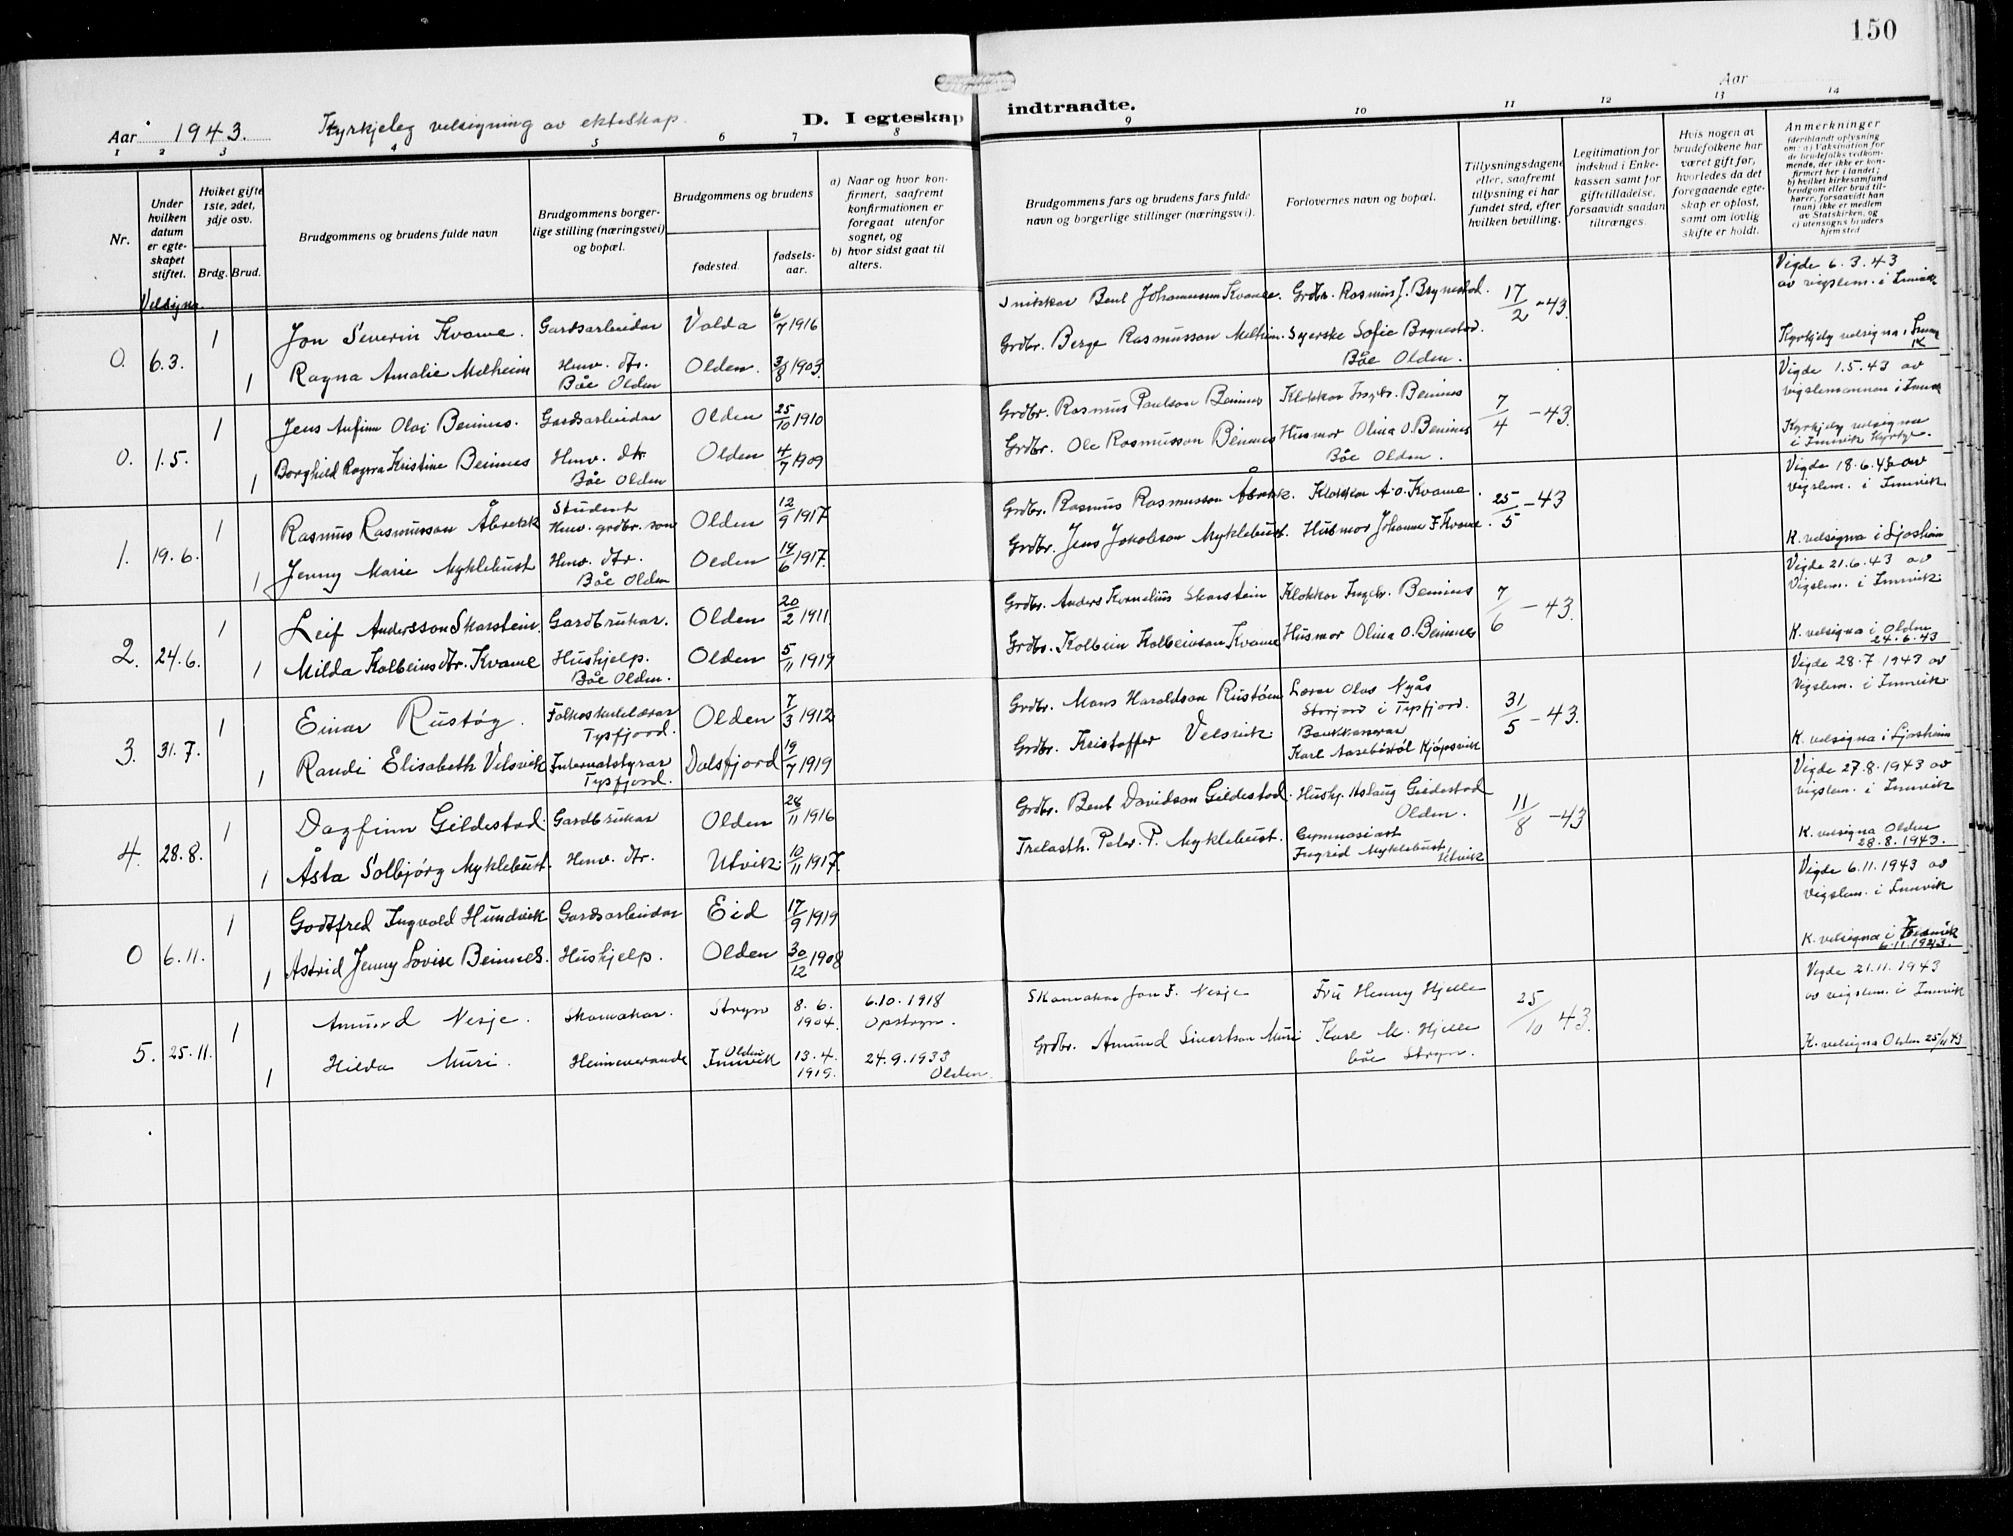 150
Aar 1943. Kyrkjeleg velsigning av ekteskap. D. I egteskap indtraadte. Aar
1 2 3 4 5 6 7 8 9 10 11 12 13 14
Nr.
Under hvilken datum er egteskapet stiftet.
Hvilket gifte 1ste, 2det, 3dje osv.
Brdg. Brud.
Brudgommens og brudens fulde navn
Brudgommens borgerlige stilling (næringsvei) og bopæl.
Brudgommens og brudens
fødested.
fødselsaar.
a) Naar og hvor konfirmert, saafremt konfirmationen er foregaat utenfor sognet, og
b) hvor sidst gaat til alters.
Brudgommens fars og brudens fars fulde navn og borgerlige stillinger (næringsvei).
Forlovernes navn og bopæl.
Tillysningsdagene eller, saafremt tillysning ei har fundet sted, efter hvilken bevilling.
Legitimation for indskud i Enkekassen samt for giftetilladelse, forsaavidt saadan tiltrænges.
Hvis nogen av brudefolkene har været gift før, hvorledes da det foregaaende egteskap er opløst, samt om lovlig skifte er holdt.
Anmerkninger
(deriblandt oplysning om: a) Vaksination for de brudefolks vedkommende, der ikke er konfirmert her i landet; b) hvilket kirkesamfund brudgom eller brud tilhører, forsaavidt han (hun) ikke er medlem av Statskirken, og c) utensogns bruders hjemsted
Velsigna
0. 6.3. 1 Jon Severin Kvame. Gardsarbeidar Volda 6/7 1916 Snikkar Bent Johannessen Kvame. Grdbr. Rasmus J. Brynestad. 17/2 -43. Vigde 6.3.43 av vigslem. i Innvik
1 Ragna Amalie Melheim Hmv. dtr. Båe Olden Olden. 3/8 1903. Grdbr. Berge Rasmusson Melheim. Syerske Sofie Brynestad. Båe Olden. Kyrkjeleg velsigna i Innvik
0. 1.5. 1 Jens Anfinn Olai Beinnes. Gardsarbeidar Olden 25/10 1910 Grdbr. Rasmus Paulson Beinnes Klokkar Ingebr. Beinnes 7/4 -43. Vigde 1.5.43 av vigslemannen i Innvik
1 Borghild Ragna Kristine Beinnes Hmv. dtr. Båe Olden Olden 4/7 1909 Grdbr. Ole Rasmusson Beinnes Husmor Olina O. Beinnes Båe Olden. Kyrkjeleg velsigna i Innvik kyrkje.
1. 19.6. 1 Rasmus Rasmusson Åbrekk Student Hmv. grdbr. son Olden 12/9 1917 Grdbr. Rasmus Rasmusson Åbrekk. Klokkar A. O. Kvame. 25/5 -43 Vigde 18.6.43 av vigslem. i Innvik
1 Jenny Marie Myklebust Hmv. dtr. Båe Olden Olden 14/6 1917. Grdbr. Jens Jakobson Myklebust. Husmor Johanne F. Kvame. K. velsigna i Ljosheim
2. 24.6. 1 Leif Andersson Skarstein. Gardbrukar. Olden 20/2 1911 Grdbr. Anders Kornelius Skarstein Klokkar Ingebr. Beinnes 7/6 -43. Vigde 21.6.43 av Vigslem. i Innvik.
1 Milda Kolbeinsdtr. Kvame Hushjelp. Båe Olden. Olden 5/11 1919 Grdbr. Kolbein Kolbeinson Kvame Husmor Olina O. Beinnes K. velsigna i Olden 24.6.43
3. 31.7. 1 Einar Rustøy. Folkeskulelærar Tysfjord. Olden 7/3 1912 Grdbr. Mons Haraldson Rustøen Lærar Olav Nyås Storjord i Tysfjord. 31/5 -43. Vigde 28.7 1943 av Vigslem. i Innvik.
1 Randi Elisabeth Velsvik Internatstyrar Tysfjord. Dalsfjord 19/7 1919 Grdbr. Kristoffer Velsvik. Bankkasserar Karl Aasebøstøl Kjøpsvik K. velsigna i Ljosheim
4. 28.8. 1 Dagfinn Gildestad. Gardbrukar Olden 28/11 1916 Grdbr. Bent Davidson Gildestad. Hushj. Aslaug Gildestad Olden. 11/8 -43 Vigde 27.8.1943 av vigslem. i Innvik
1 Åsta Solbjørg Myklebust. Hmv. dtr. Utvik. 10/11 1917. Trelasth. Peter P. Myklebust. Gymnasiast Ingrid Myklebust, Utvik K. velsigna Olden 28.8.1943.
0 6.11. 1 Godtfred Ingvald Hundvik Gardsarbeidar Eid 17/9 1919 Vigde 6.11.1943 av vigslem. i Innvik
1 Astrid Jenny Lovise Beinnes. Hushjelp. Olden 30/12 1908 K. velsigna i Innvik 6.11.1943.
5. 25.11. 1 Amund Nesje. Skomakar. Stryn 8.6. 1904. 6.10.1918 Opstryn. Skomakar Jon F. Nesje Fru Henny Hjelle 25/10 43. Vigde 21.11.1943 av vigslem. i Innvik
1 Hilda Muri. Heimeverande Olden Innvik 13.4. 1919. 24.9.1933 Olden. Grdbr. Amund Sivertson Muri Karl M. Hjelle båe Stryn. K. velsigna Olden 25/11 43